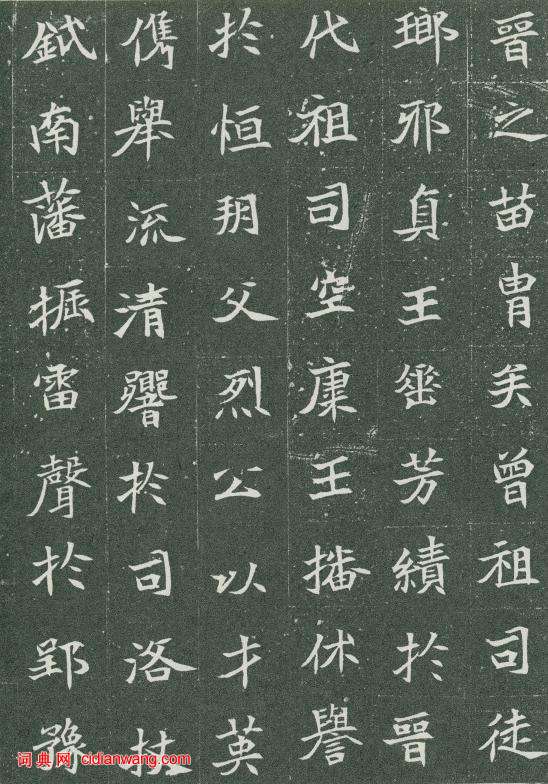 晉之苗胄矣曾祖司徒
瑯邪貞王垂芳績於晉
代祖司空康王播休譽
於恒朔父烈公以才英
儁舉流清響於司洛杖
鉞南藩振雷聲於郢豫
词典网 cidianwang.com